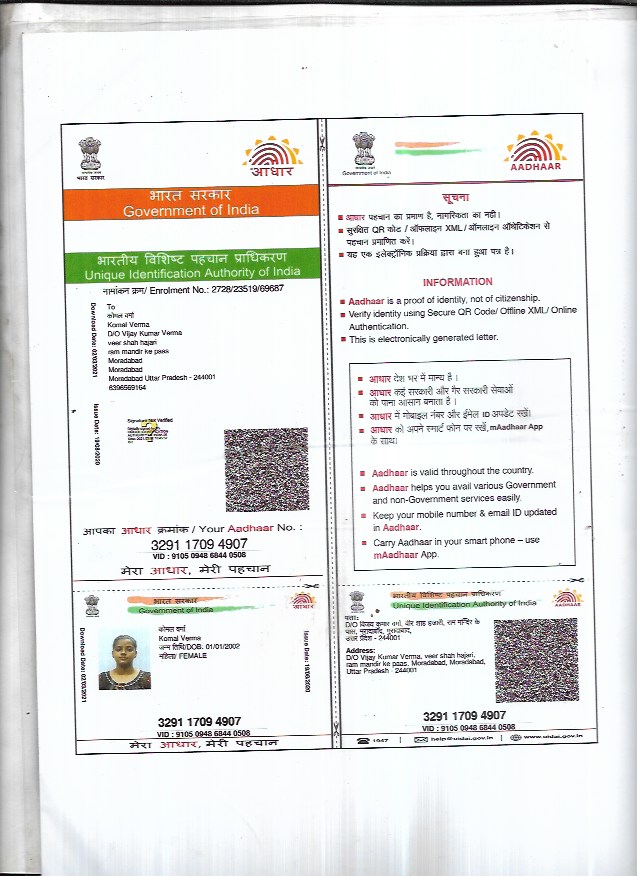 भारत सरकार
आधार
भारत सरकार
Government of India
भारतीय विशिष्ट पहचान प्राधिकरण
Unique Identification Authority of India
नामांकन क्रम/ Enrolment No.: 2728/23519/69687
Download Date: 02/03/2021
To
कोमल वर्मा
Komal Verma
D/O Vijay Kumar Verma
veer shah hajari
ram mandir ke paas
Moradabad
Moradabad
Moradabad Uttar Pradesh - 244001
8396569164
Issue Date: 19/09/2020
Signature Not Verified
आपका आधार क्रमांक / Your Aadhaar No. :
3291 1709 4907
VID : 9105 0948 6844 0508
मेरा आधार, मेरी पहचान
Government of India
AADHAAR
सूचना
आधार पहचान का प्रमाण है, नागरिकता का नहीं।
सुरक्षित QR कोड / ऑफलाइन XML / ऑनलाइन ऑथेंटिकेशन से
पहचान प्रमाणित करें।
यह एक इलेक्ट्रॉनिक प्रक्रिया द्वारा बना हुआ पत्र है।
INFORMATION
Aadhaar is a proof of identity, not of citizenship.
Verify identity using Secure QR Code/ Offline XML/ Online
Authentication.
This is electronically generated letter.
आधार देश भर में मान्य है।
आधार कई सरकारी और गैर सरकारी सेवाओं
को पाना आसान बनाता है।
आधार में मोबाइल नंबर और ईमेल ID अपडेट रखें।
आधार को अपने स्मार्ट फोन पर रखें, mAadhaar App
के साथ।
Aadhaar is valid throughout the country.
Aadhaar helps you avail various Government
and non-Government services easily.
Keep your mobile number & email ID updated
in Aadhaar.
Carry Aadhaar in your smart phone – use
mAadhaar App.
भारत सरकार
Government of India
आधार
Download Date: 02/03/2021
कोमल वर्मा
Komal Verma
जन्म तिथि/DOB: 01/01/2002
महिला/ FEMALE
Issue Date: 19/09/2020
3291 1709 4907
VID : 9105 0948 6844 0508
मेरा आधार, मेरी पहचान
भारतीय विशिष्ट पहचान प्राधिकरण
Unique Identification Authority of India
AADHAAR
पता:
D/O विजय कुमार वर्मा, वीर शाह हजारी, राम मन्दिर के
पास, मुरादाबाद, मुरादाबाद,
उत्तर प्रदेश - 244001
Address:
D/O Vijay Kumar Verma, veer shah hajari,
ram mandir ke paas, Moradabad, Moradabad,
Uttar Pradesh - 244001
3291 1709 4907
VID : 9105 0948 6844 0508
1947 | help@uidai.gov.in | www.uidai.gov.in